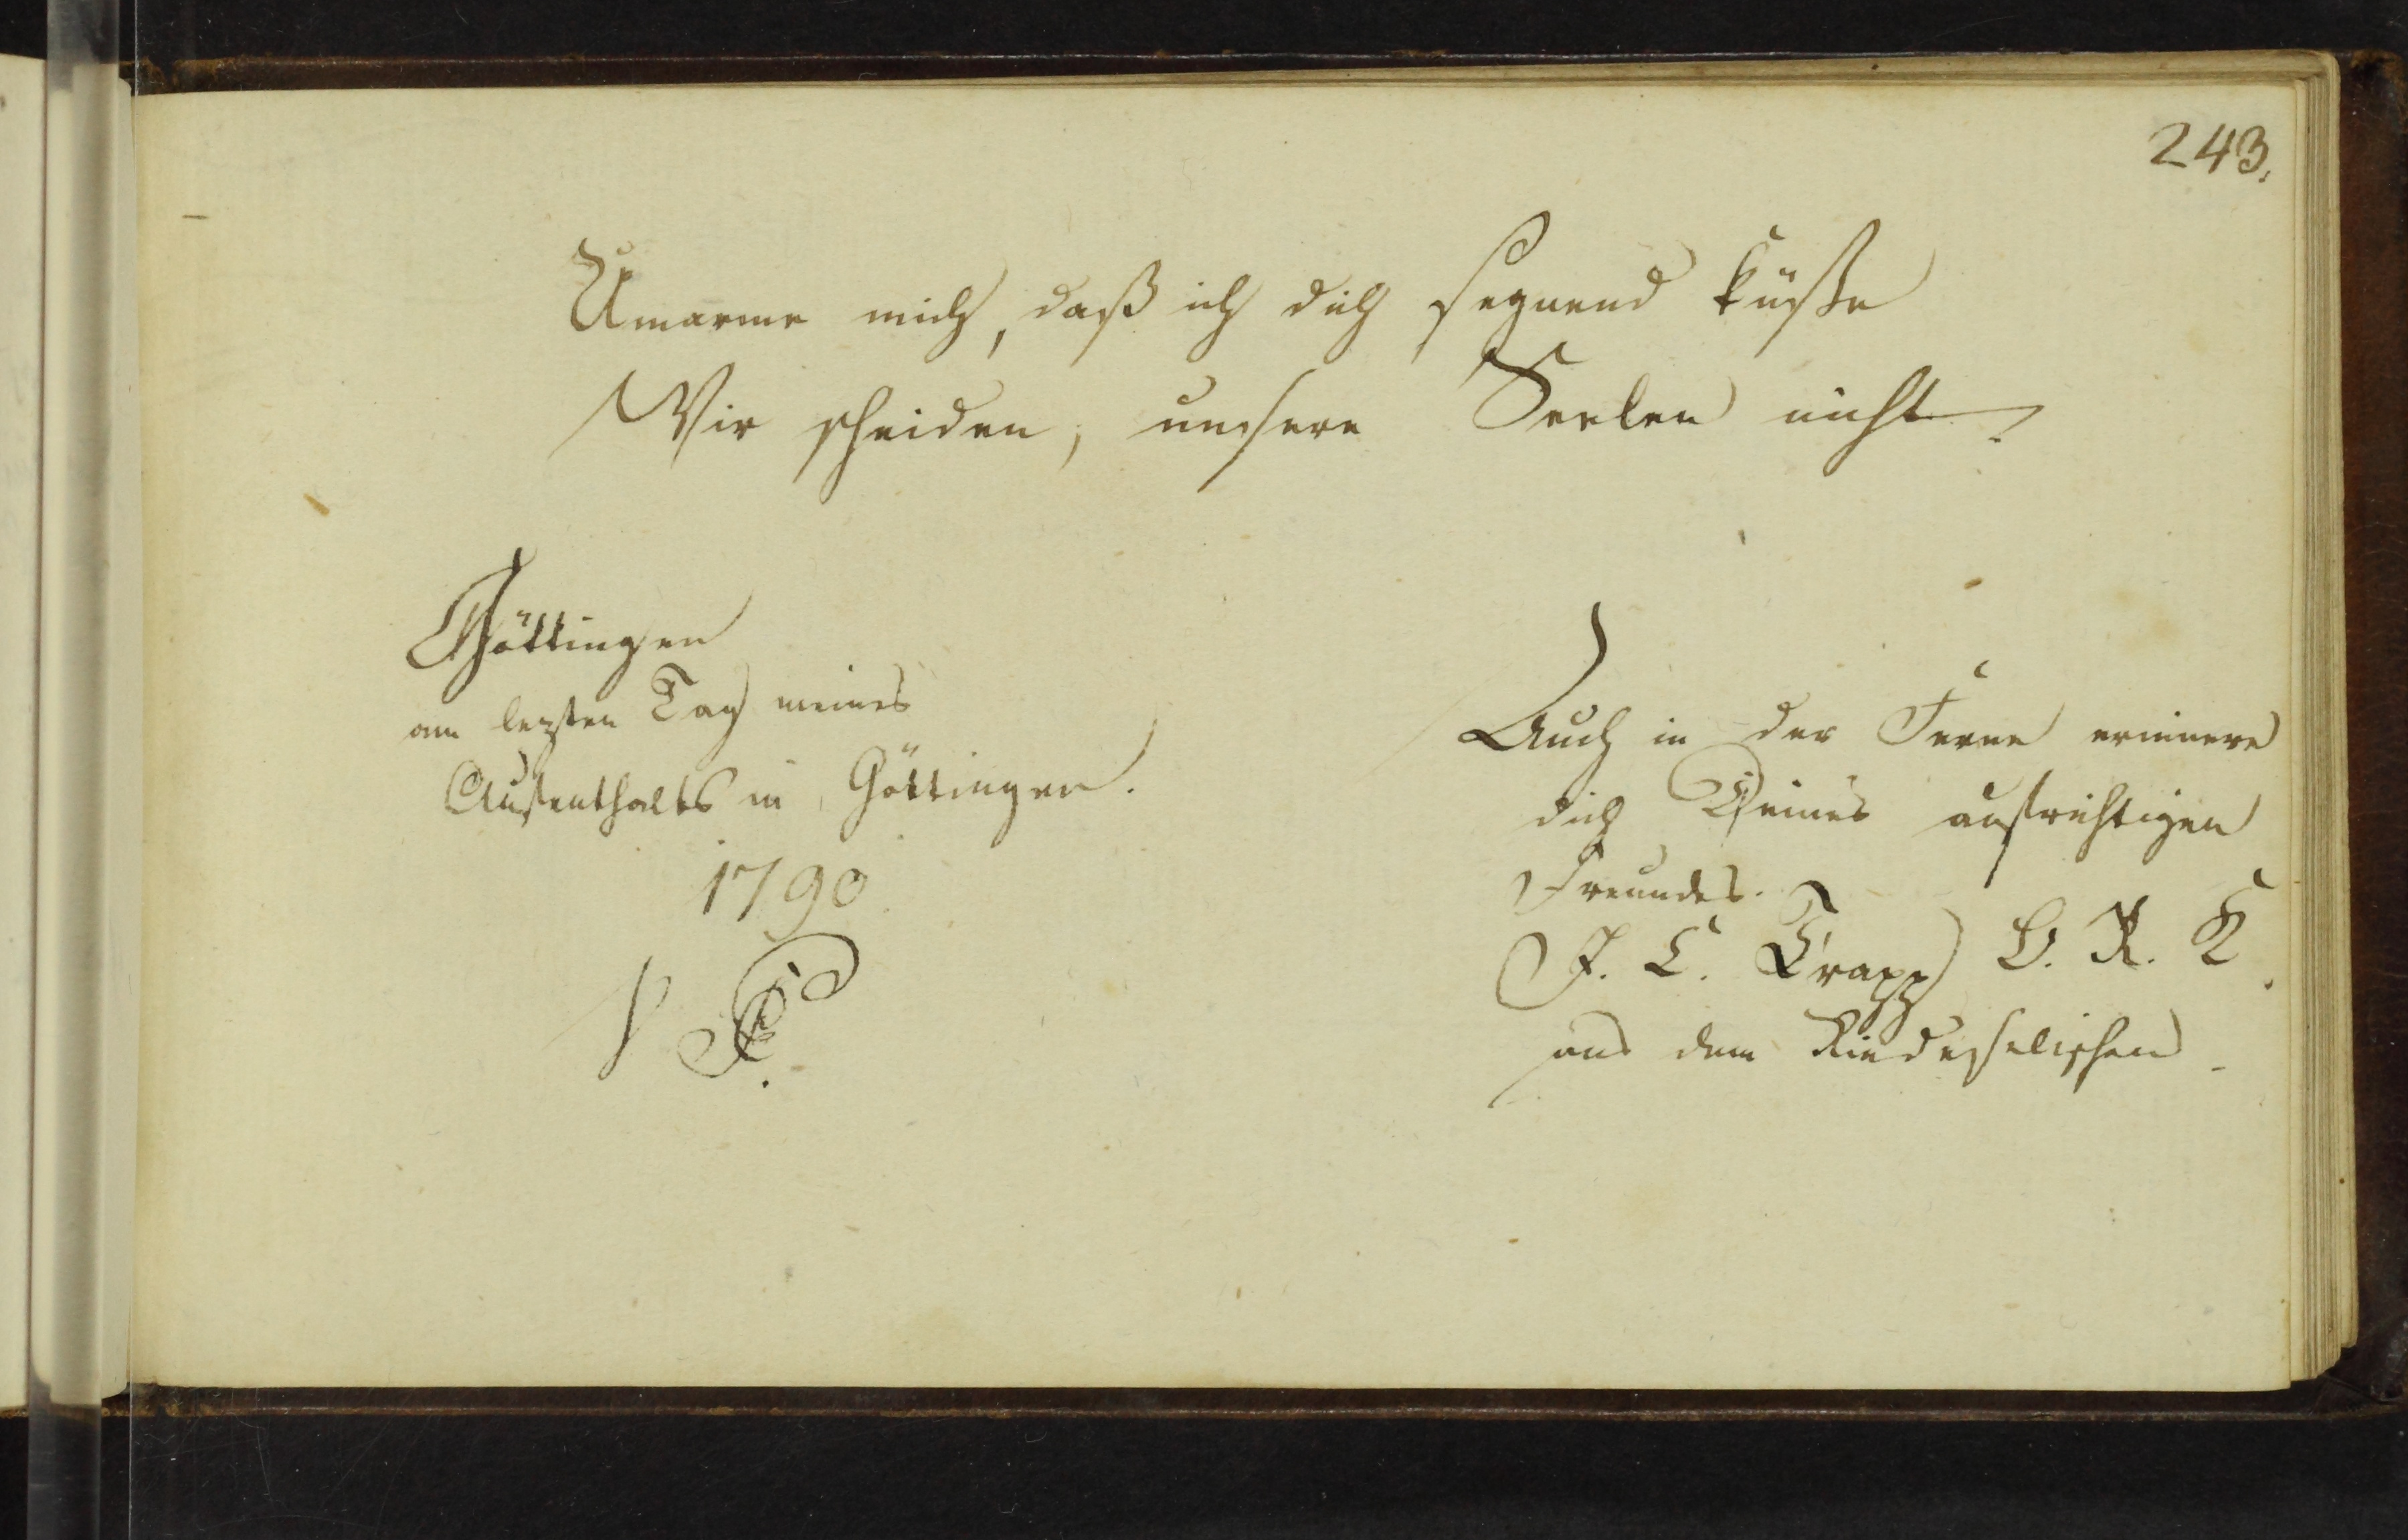 243.
Umarme mich, daß ich dich segnend küße
Wir scheiden, unsere Seelen nicht.
Göttingen
am lezten Tag meines
Aufenthalts in Göttingen.
1790
Auch in der Ferne erinnere
dich Deines aufrichtigen
Freundes.
J. C. Trapp B. R. K.
aus dem Riedeselischen.